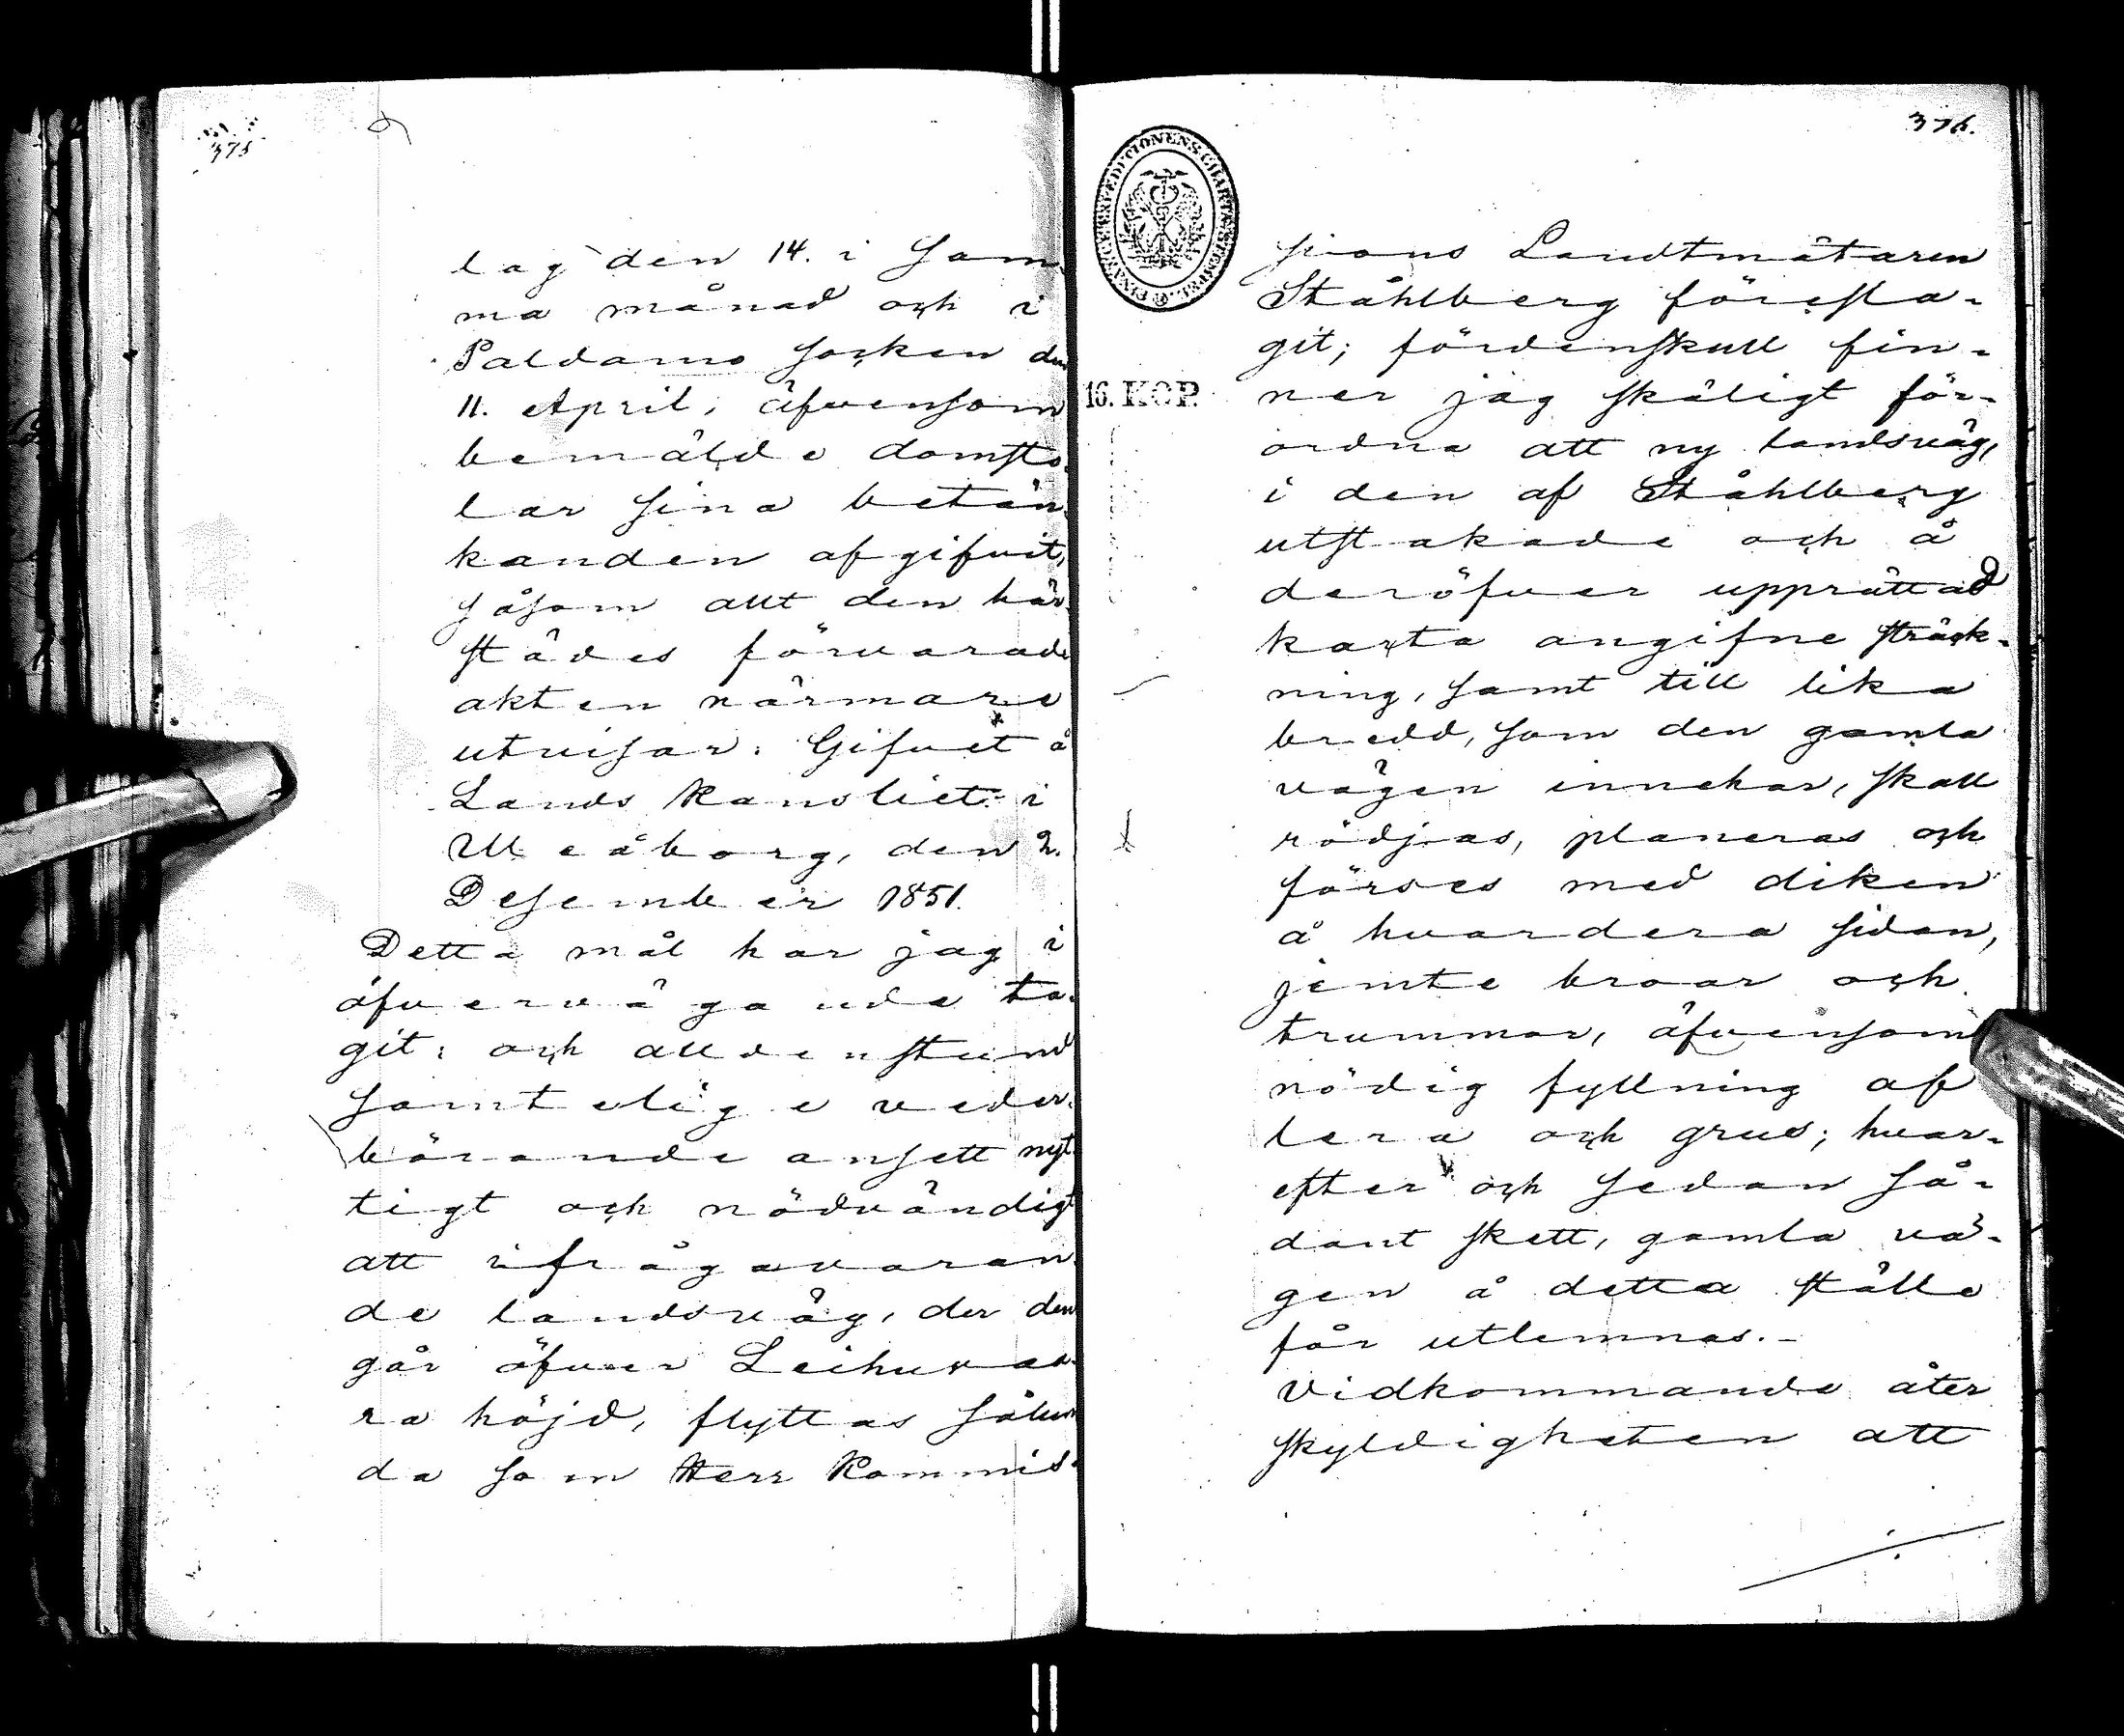 375
lag den 14. i sam-
ma månad och i
Paldamo socken den
11. April, äfvensom
bemälde domsto-
lar sina betän-
kanden afgifvit,
såsom allt den här-
städes förvarade
akten närmare
utvisar. Gifvet å
Lands Kansliet i
Uleåborg, den 2.
Desember 1851.
Detta mål har jag i
öfvervägande ta-
git; och alldenstund
samtelige veder-
börande ansett nyt-
tigt och nödvändigt
att ifrågavaran-
de landsväg, der den
går öfver Leihuvaa-
ra höjd, flyttas sålun-
da som Herr Kommis-
376.
FINANCE EXPEDITIONENS CHARTÆ STEMPEL.
16. KOP.
sions Landtmätaren
Ståhlbergföresla-
git; fördenskull fin-
ner jag skäligt för-
ordna att ny landsväg,
i den af Ståhlberg
utstakade och å
deröfver upprättad
karta angifne sträck-
ning, samt till lika
bredd, som den gamla
vägen innehar, skall
rödjas, planeras och
förses med diken
å hvardera sidan,
jemte broar och
trummor, äfvensom
nödig fyllning af
lera och grus; hvar-
efter och sedan så-
dant skett, gamla vä-
gen å detta ställe
får utlemnas.-
Vidkommande åter
skyldigheten att